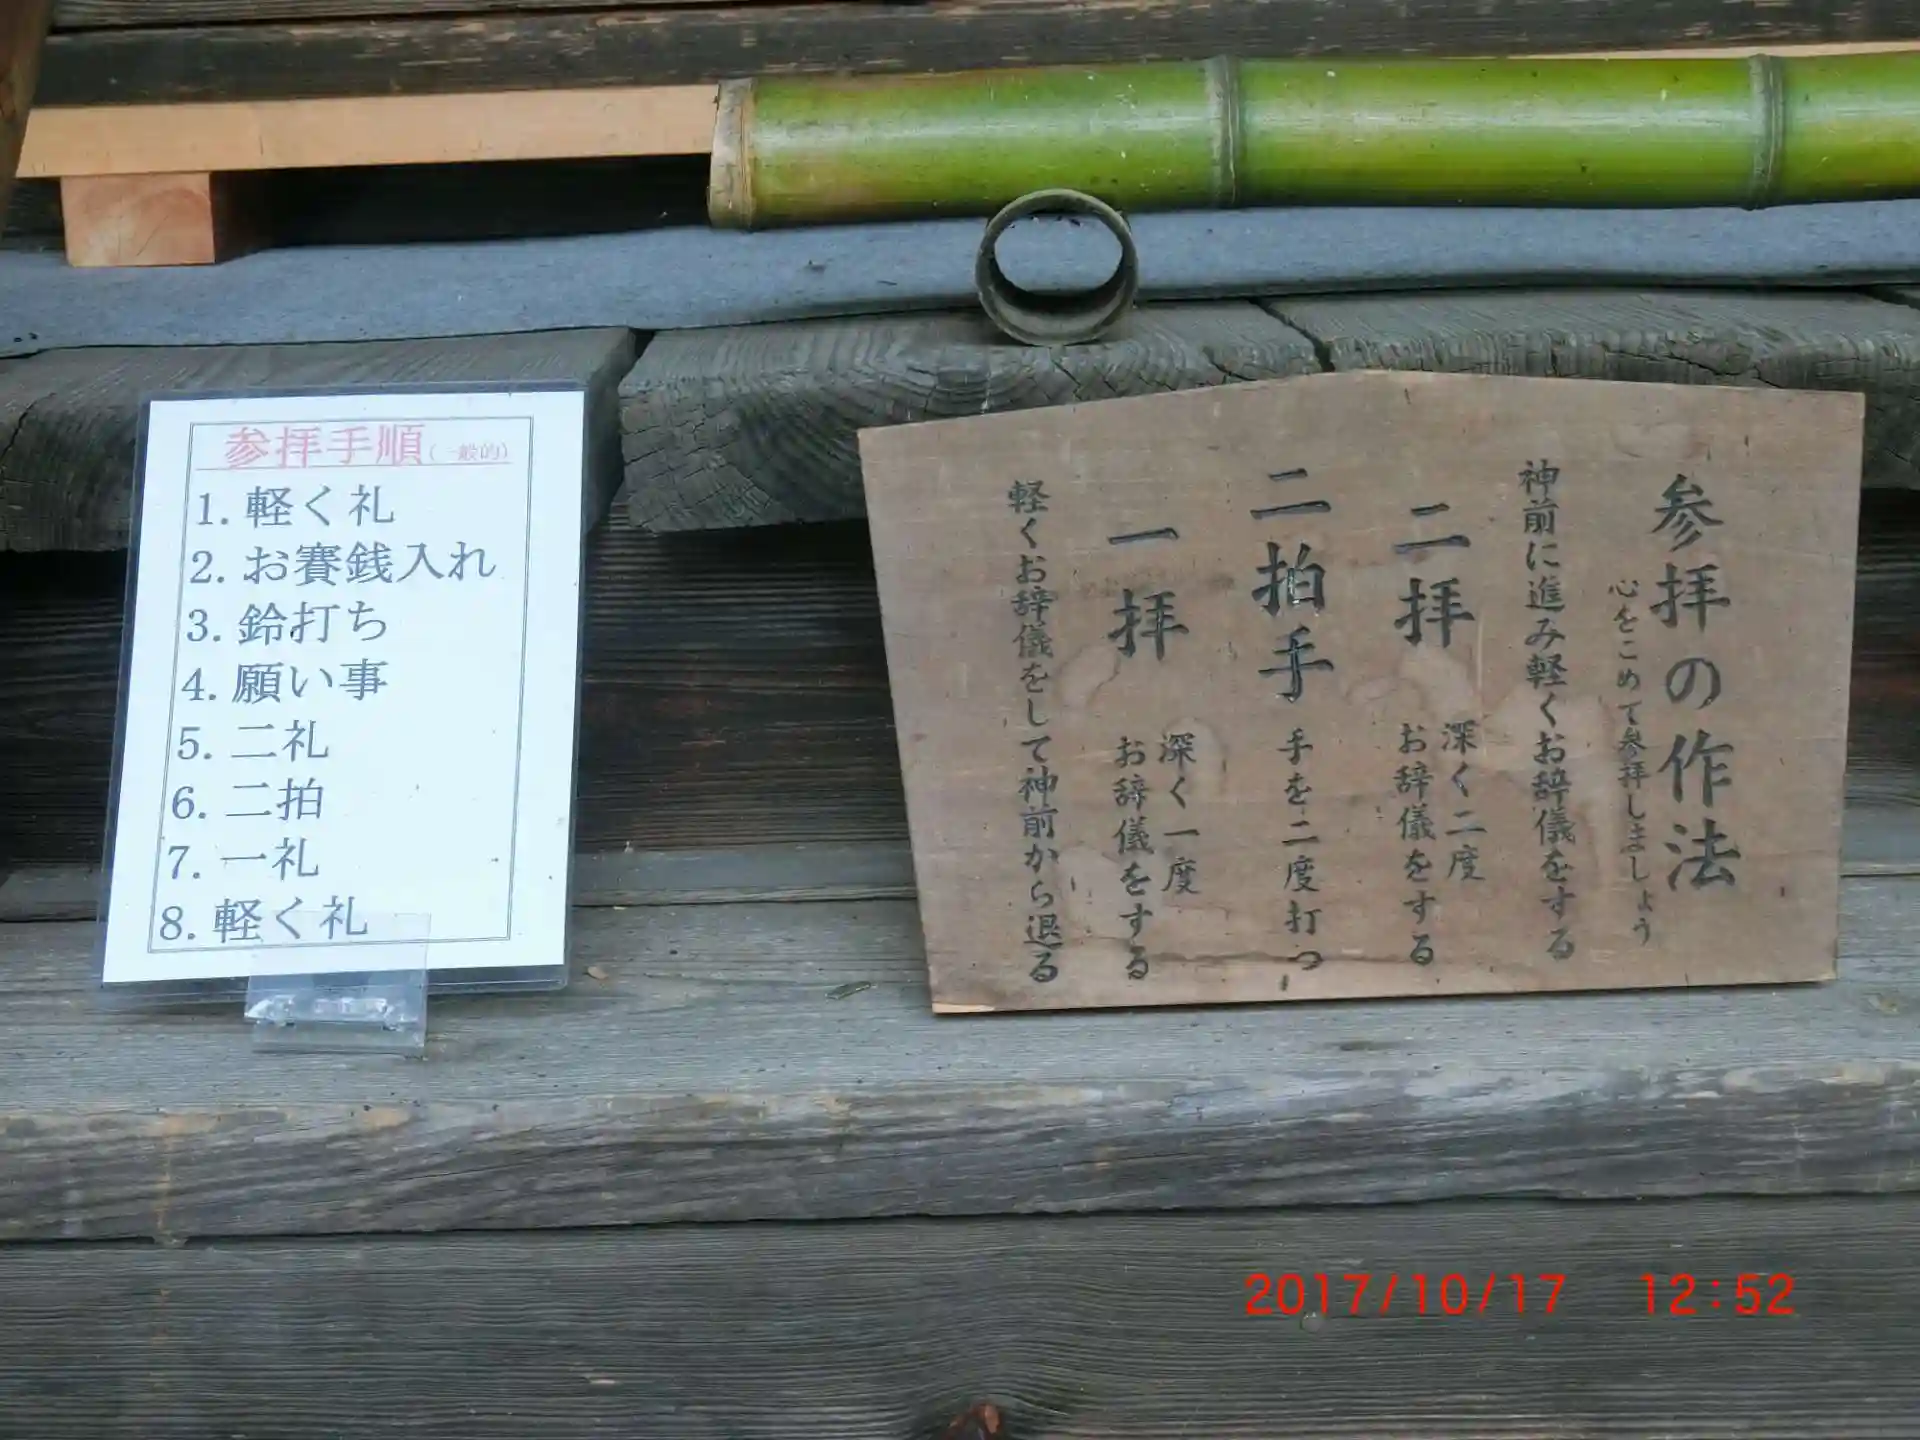 参拝手順(一般的)
1. 軽く礼
2. お賽銭入れ
3. 鈴打ち
4. 願い事
5. 二礼
6. 二拍
7. 一礼
8. 軽く礼
参拝の作法
心をこめて参拝しましょう
神前に進み軽くお辞儀をする
二拝
深く二度
お辞儀をする
二拍手 手を二度打つ
一拝
深く一度
お辞儀をする
軽くお辞儀をして神前から退る
2017/10/17 12:52